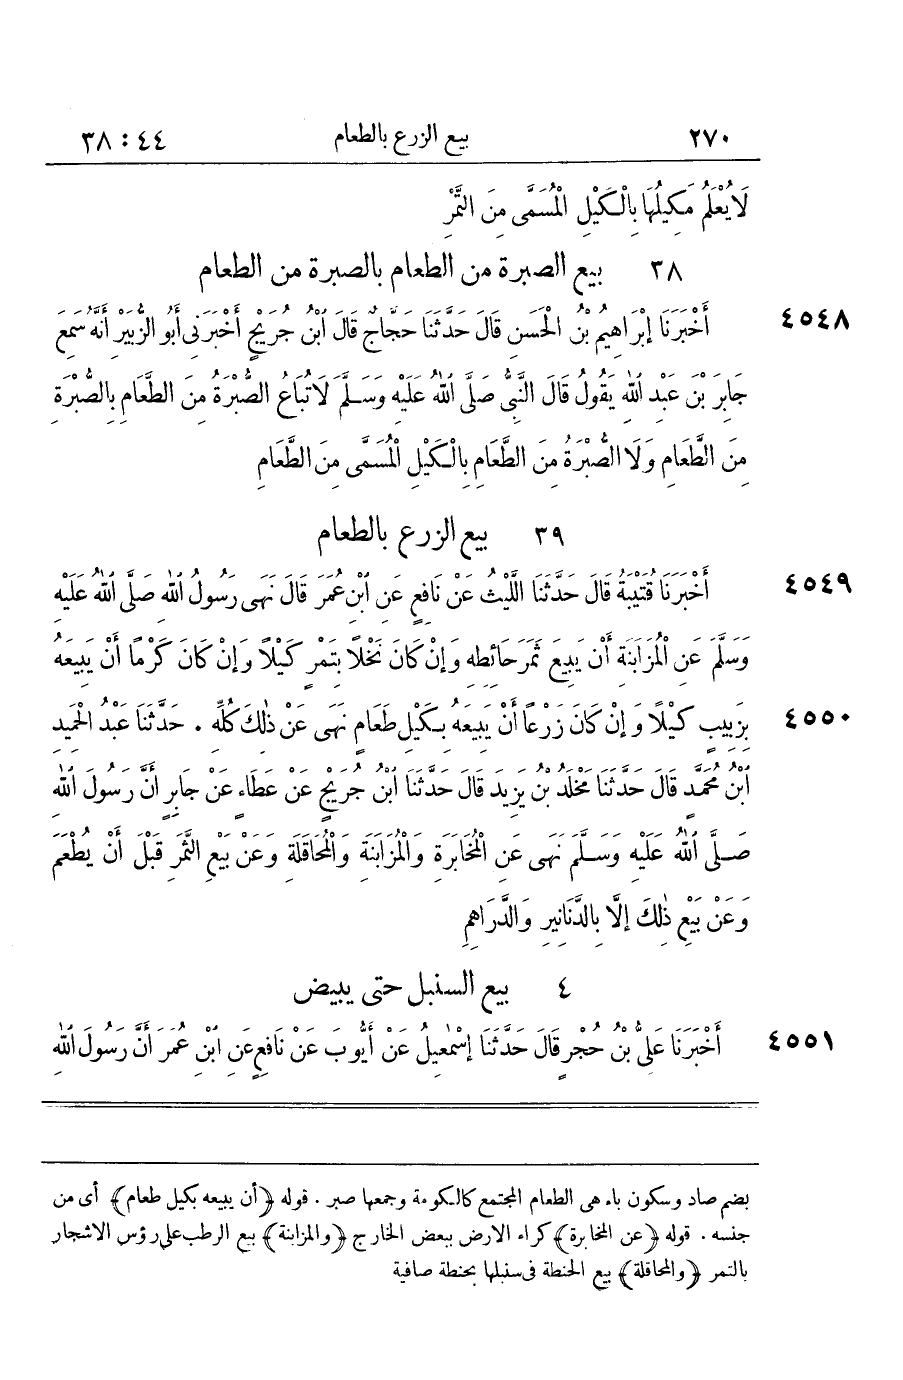 ٢٧٠ بيع الزرع بالطعام ٤٤ : ٣٨
لَا يُعْلَمُ مَكِيلُهَا بِالْكَيْلِ الْمُسَمَّى مِنَ التَّمْرِ
٣٨ بيع الصبرة من الطعام بالصبرة من الطعام
٤٥٤٨ أَخْبَرَنَا إِبْرَاهِيمُ بْنُ الْحَسَنِ قَالَ حَدَّثَنَا حَجَّاجٌ قَالَ ابْنُ جُرَيْجٍ أَخْبَرَنِي أَبُو الزُّبَيْرِ أَنَّهُ سَمِعَ
جَابِرَ بْنَ عَبْدِ اللهِ يَقُولُ قَالَ النَّبِيُّ صَلَّى اللهُ عَلَيْهِ وَسَلَّمَ لَا تُبَاعُ الصُّبْرَةُ مِنَ الطَّعَامِ بِالصُّبْرَةِ
مِنَ الطَّعَامِ وَلَا الصُّبْرَةُ مِنَ الطَّعَامِ بِالْكَيْلِ الْمُسَمَّى مِنَ الطَّعَامِ
٣٩ بيع الزرع بالطعام
٤٥٤٩ أَخْبَرَنَا قُتَيْبَةُ قَالَ حَدَّثَنَا اللَّيْثُ عَنْ نَافِعٍ عَنِ ابْنِ عُمَرَ قَالَ نَهَى رَسُولُ اللهِ صَلَّى اللهُ عَلَيْهِ
وَسَلَّمَ عَنِ الْمُزَابَنَةِ أَنْ يَبِيعَ ثَمَرَ حَائِطِهِ وَإِنْ كَانَ نَخْلًا بِتَمْرٍ كَيْلًا وَإِنْ كَانَ كَرْمًا أَنْ يَبِيعَهُ
٤٥٥٠ بِزَبِيبٍ كَيْلًا وَإِنْ كَانَ زَرْعًا أَنْ يَبِيعَهُ بِكَيْلِ طَعَامٍ نَهَى عَنْ ذٰلِكَ كُلِّهِ . حَدَّثَنَا عَبْدُ الْحَمِيدِ
ابْنُ مُحَمَّدٍ قَالَ حَدَّثَنَا مَخْلَدُ بْنُ يَزِيدَ قَالَ حَدَّثَنَا ابْنُ جُرَيْجٍ عَنْ عَطَاءٍ عَنْ جَابِرٍ أَنَّ رَسُولَ اللهِ
صَلَّى اللهُ عَلَيْهِ وَسَلَّمَ نَهَى عَنِ الْمُخَابَرَةِ وَالْمُزَابَنَةِ وَالْمُحَاقَلَةِ وَعَنْ بَيْعِ الثَّمَرِ قَبْلَ أَنْ يُطْعَمَ
وَعَنْ بَيْعِ ذٰلِكَ إِلَّا بِالدَّنَانِيرِ وَالدَّرَاهِمِ
٤ بيع السنبل حتى يبيض
٤٥٥١ أَخْبَرَنَا عَلِيُّ بْنُ حُجْرٍ قَالَ حَدَّثَنَا إِسْمٰعِيلُ عَنْ أَيُّوبَ عَنْ نَافِعٍ عَنِ ابْنِ عُمَرَ أَنَّ رَسُولَ اللهِ
بضم صاد وسكون باء هى الطعام المجتمع كالكومة وجمعها صبر . قوله ﴿أن يبيعه بكيل طعام﴾ أى من
جنسه . قوله ﴿عن المخابرة﴾ كراء الارض ببعض الخارج ﴿والمزابنة﴾ بيع الرطب على رؤس الاشجار
بالتمر ﴿والمحاقلة﴾ بيع الحنطة فى سنبلها بحنطة صافية